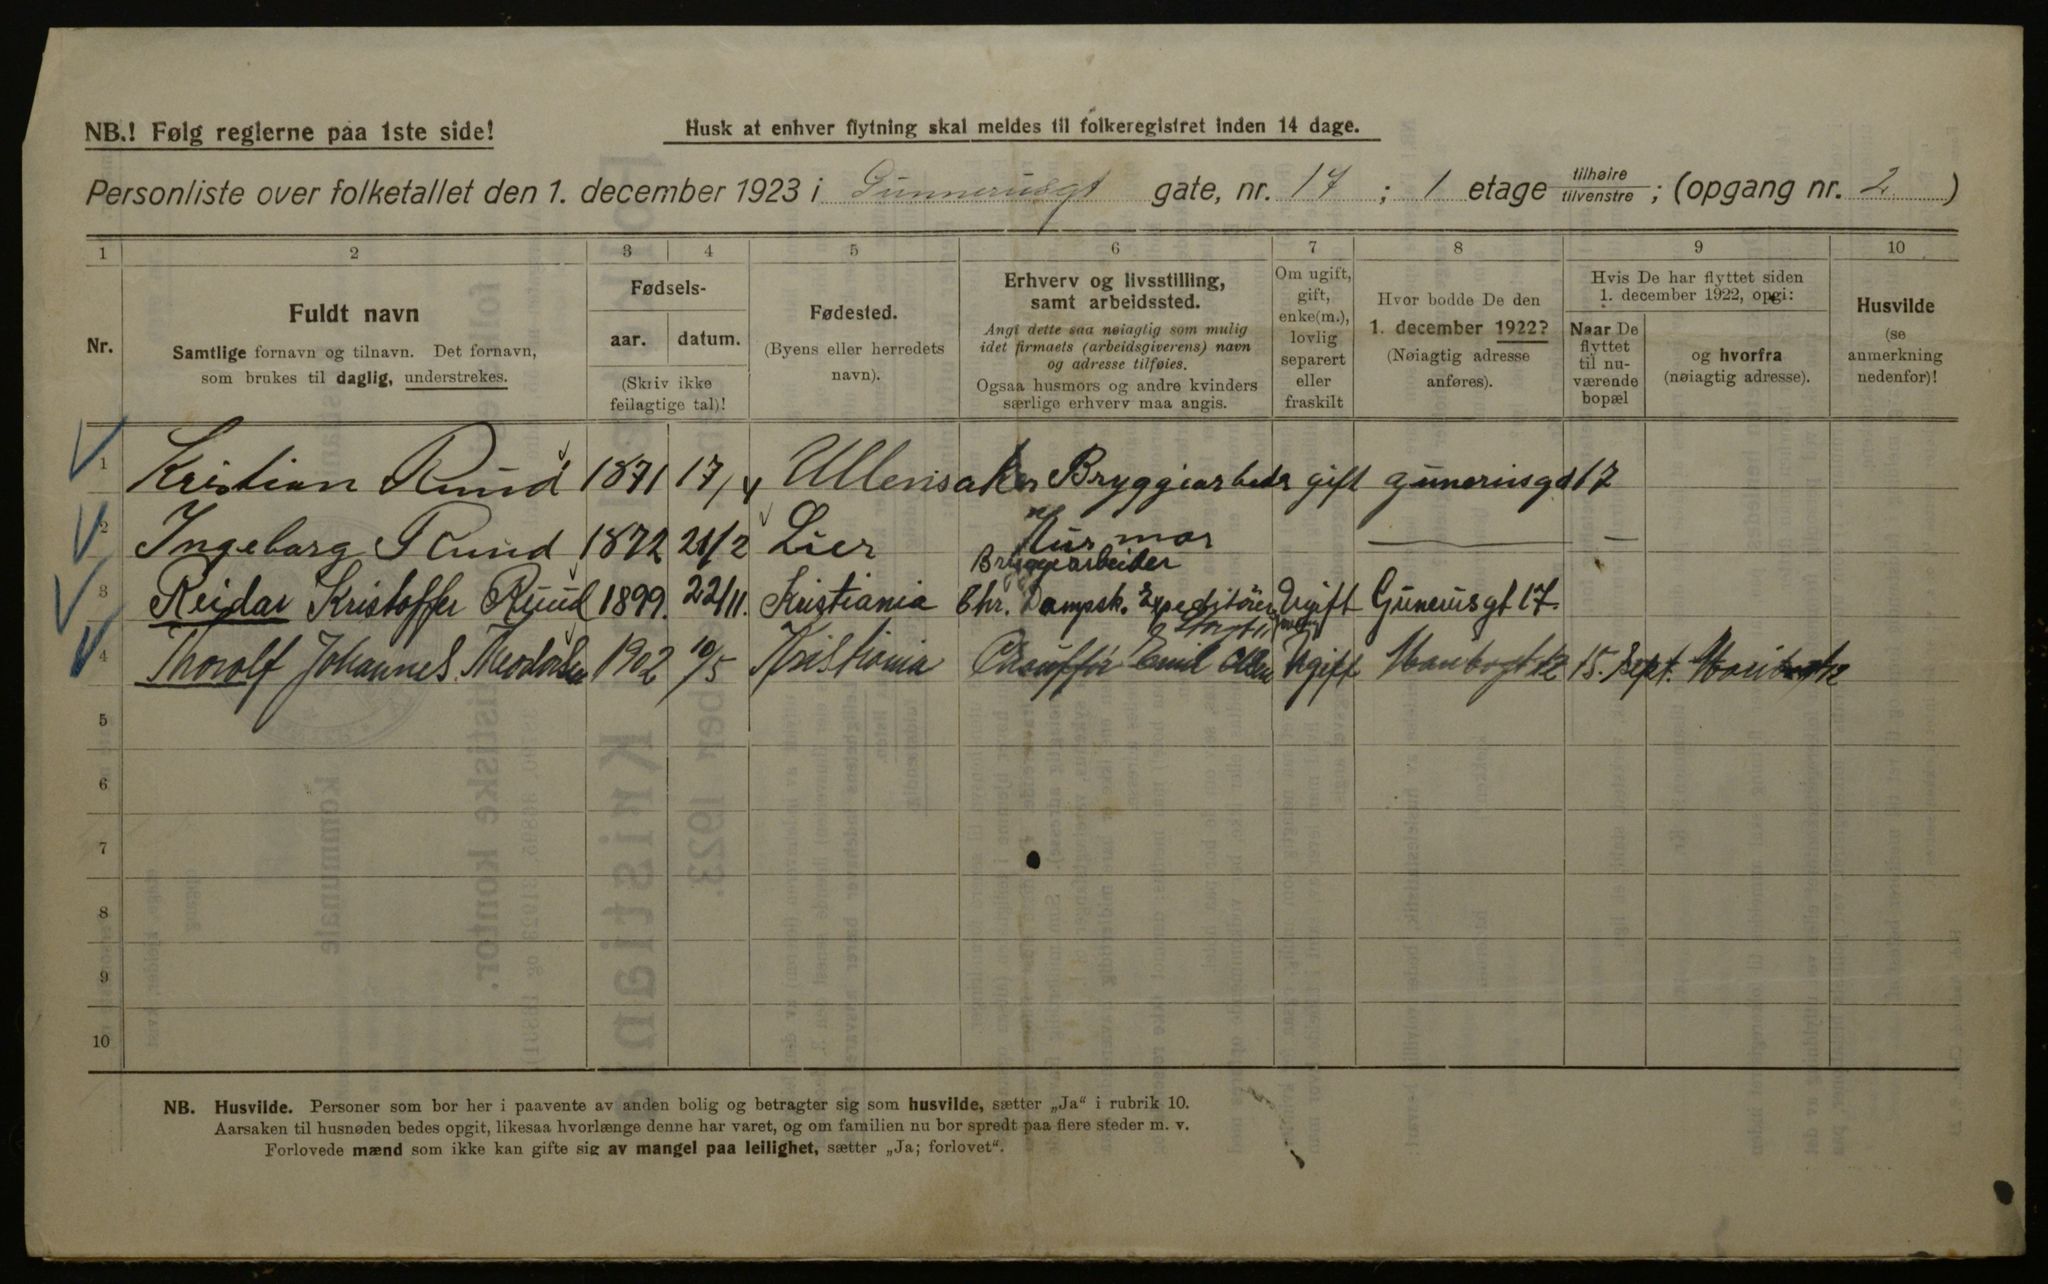 NB.! Følg reglerne paa 1ste side!
Husk at enhver flytning skal meldes til folkeregistret inden 14 dage.
Personliste over folketallet den 1. december 1923 i Gunnerusgt gate, nr. 17 ; 1 etage tilhøire tilvenstre ; (opgang nr. 2 )
1 2 3 4 5 6 7 8 9 10
Nr.
Fuldt navn
Samtlige fornavn og tilnavn. Det fornavn,
som brukes til daglig, understrekes.
Fødsels-
aar. datum.
(Skriv ikke
feilagtige tal)!
Fødested.
(Byens eller herredets
navn).
Erhverv og livsstilling,
samt arbeidssted.
Angi dette saa nøiagtig som mulig
idet firmaets (arbeidsgiverens) navn
og adresse tilføies.
Ogsaa husmors og andre kvinders
særlige erhverv maa angis.
Om ugift,
gift,
enke(m.),
lovlig
separert
eller
fraskilt
Hvor bodde De den
1. december 1922?
(Nøiagtig adresse
anføres).
Hvis De har flyttet siden
1. december 1922, opgi:
Naar De
flyttet
til nu-
værende
bopæl
og hvorfra
(nøiagtig adresse).
Husvilde
(se
anmerkning
nedenfor)!
1 Kristian Ruud 1871 17/4 Ullensaker Bryggiarbeder gift gunerusgd 17
2 Ingeborg Ruud 1872 21/2 Lier Husmor — —
Bryggearbeider
3 Reidar Kristoffer Ruud 1899. 22/11. Kristiania Chr. Dampsk. Expeditörer Ugift Gunerusgt 17.
4 Thorolf Johannes Theodorsen 1902 10/5 Kristiania Chauffør Emil Olsen Ugift 15. Sept.
5
6
7
8
9
10
NB. Husvilde. Personer som bor her i paavente av anden bolig og betragter sig som husvilde, sætter „Ja“ i rubrik 10.
Aarsaken til husnøden bedes opgit, likesaa hvorlænge denne har varet, og om familien nu bor spredt paa flere steder m. v.
Forlovede mænd som ikke kan gifte sig av mangel paa leilighet, sætter „Ja; forlovet“.